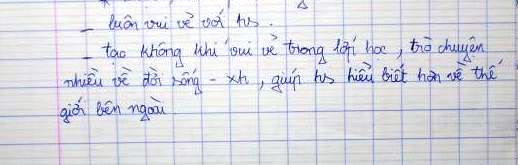 - luôn vui vẻ với hs.
- tạo không khí vui vẻ trong lớp học, trò chuyện
nhiều về đời sống - xh, giúp hs hiểu biết hơn về thế
giới bên ngoài